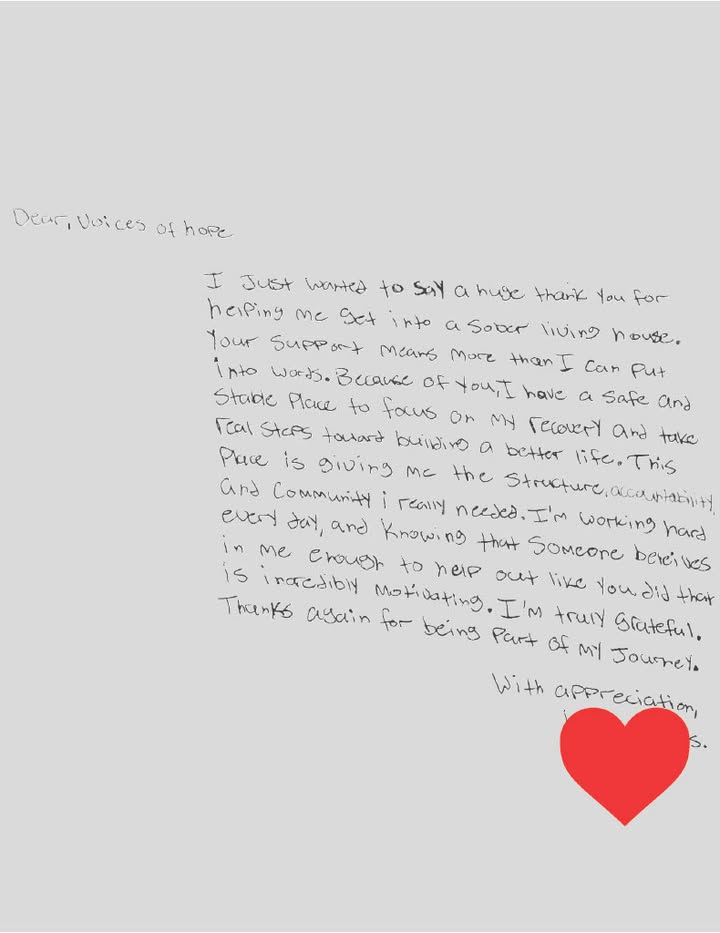 Dear, Voices of hope
I Just wanted to say a huge thank you for
helping me get into a sober living house.
Your support means more than I can put
into words. Because of you, I have a safe and
stable place to focus on my recovery and take
real steps toward building a better life. This
place is giving me the structure, accountability,
and community i really needed. I'm working hard
every day, and knowing that someone beleives
in me enough to help out like you did that
is incredibly motivating. I'm truly grateful.
Thanks again for being part of my journey.
With appreciation,
s.